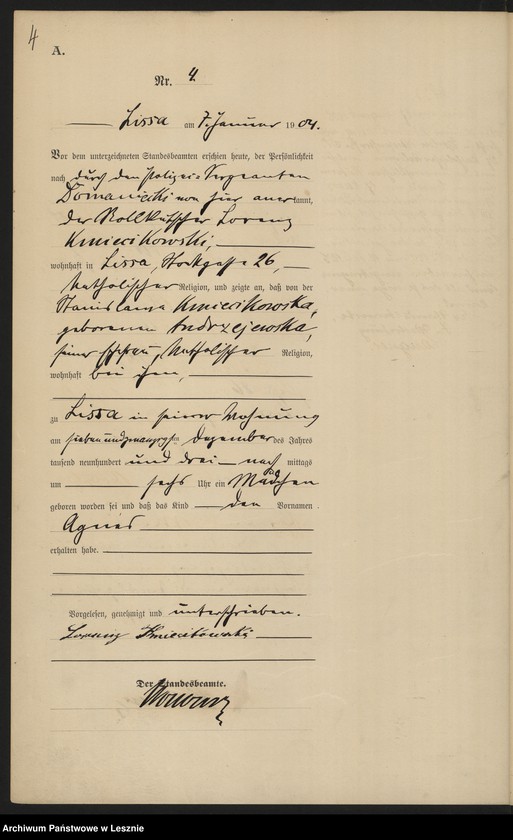 4
A.
Nr. 4
Lissa am 7. Januar 1904.
Vor dem unterzeichneten Standesbeamten erschien heute, der Persönlichkeit
nach durch den Polizei-Sergeanten
von hier anerkannt,
der Rollkutscher Lorenz
Kmiecikowski,
wohnhaft in Lissa, 26,
katholischer Religion, und zeigte an, daß von der
Stanislawa Kmiecikowska,
geborenen Andrzejewska,
seiner Ehefrau, katholischer Religion,
wohnhaft bei ihm,
zu Lissa in seiner Wohnung
am siebenundzwanzigsten Dezember des Jahres
tausend neunhundert und drei nachmittags
um sechs Uhr ein Mädchen
geboren worden sei und daß das Kind den Vornamen
Agnes
erhalten habe.
Vorgelesen, genehmigt und unterschrieben.
Lorenz Kmiecikowski
Der Standesbeamte.
Archiwum Państwowe w Lesznie